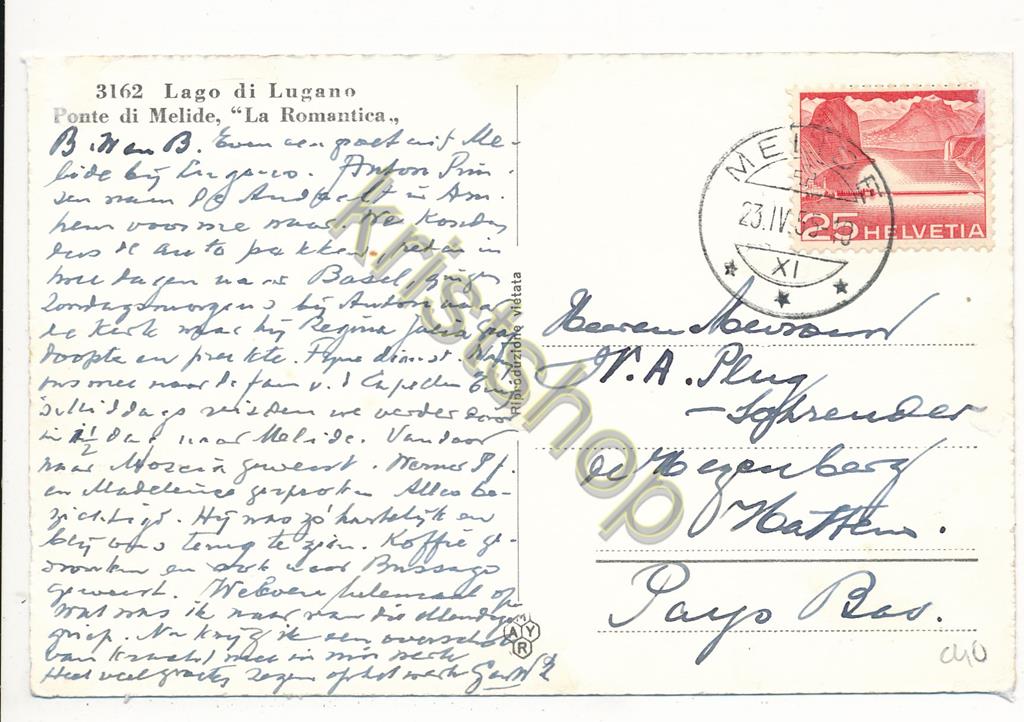 3162 Lago di Lugano
Ponte di Melide, "La Romantica„
B. W en B. Even een groet uit Me-
lide bij Lugano. Anton Prin
sen nam de Andacht in Arn
hem voor me waar. We konden
dus de auto pakken, reden in
twee dagen naar Basel, gingen
Zondagsmorgens bij Anton naar
de Kerk waar hij Regina Julia
doopte en preekte. Fijne dienst.
ons mee naar de fam v. d Capellen
middags reisden we verder door
in 1½ dag naar Melide. Vandaar
naar Moscia geweest. Werner Pf.
en Madeleine gesproken Alles be-
zichtigd. Hij was zo hartelijk en
blij ons terug te zien. Koffie ge-
dronken en ook naar Brissago
geweest. We leven helemaal op
wat was ik naar van die ellendige
griep. Nu krijg ik een overschot
van kracht mee in mijn werk
Heel veel groeten zegen op het werk
Riproduzione vietata
MAYR
HELVETIA
25
23.IV.5
XI
Heer en Mevrouw
W. A. Plug
- Schreuder
de Hezenberg
Hattem.
Pays Bas.
kristchop